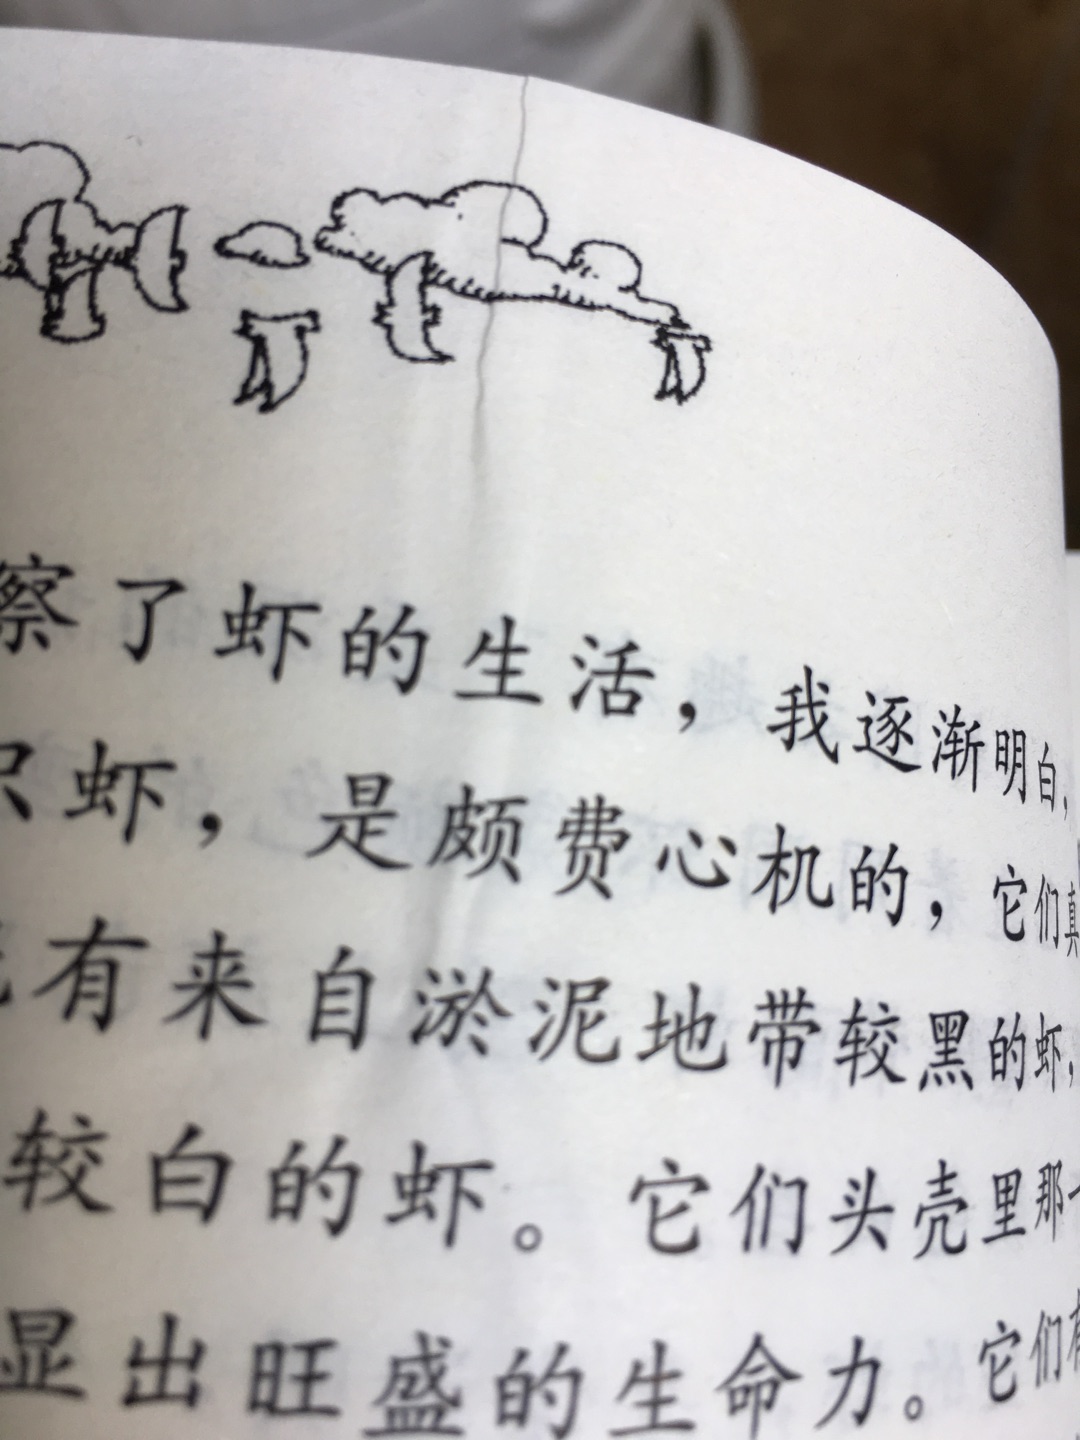 察了虾的生活，我逐渐明白，
只虾，是颇费心机的，它们真
有来自淤泥地带较黑的虾，
较白的虾。它们头壳里那
显出旺盛的生命力。它们有